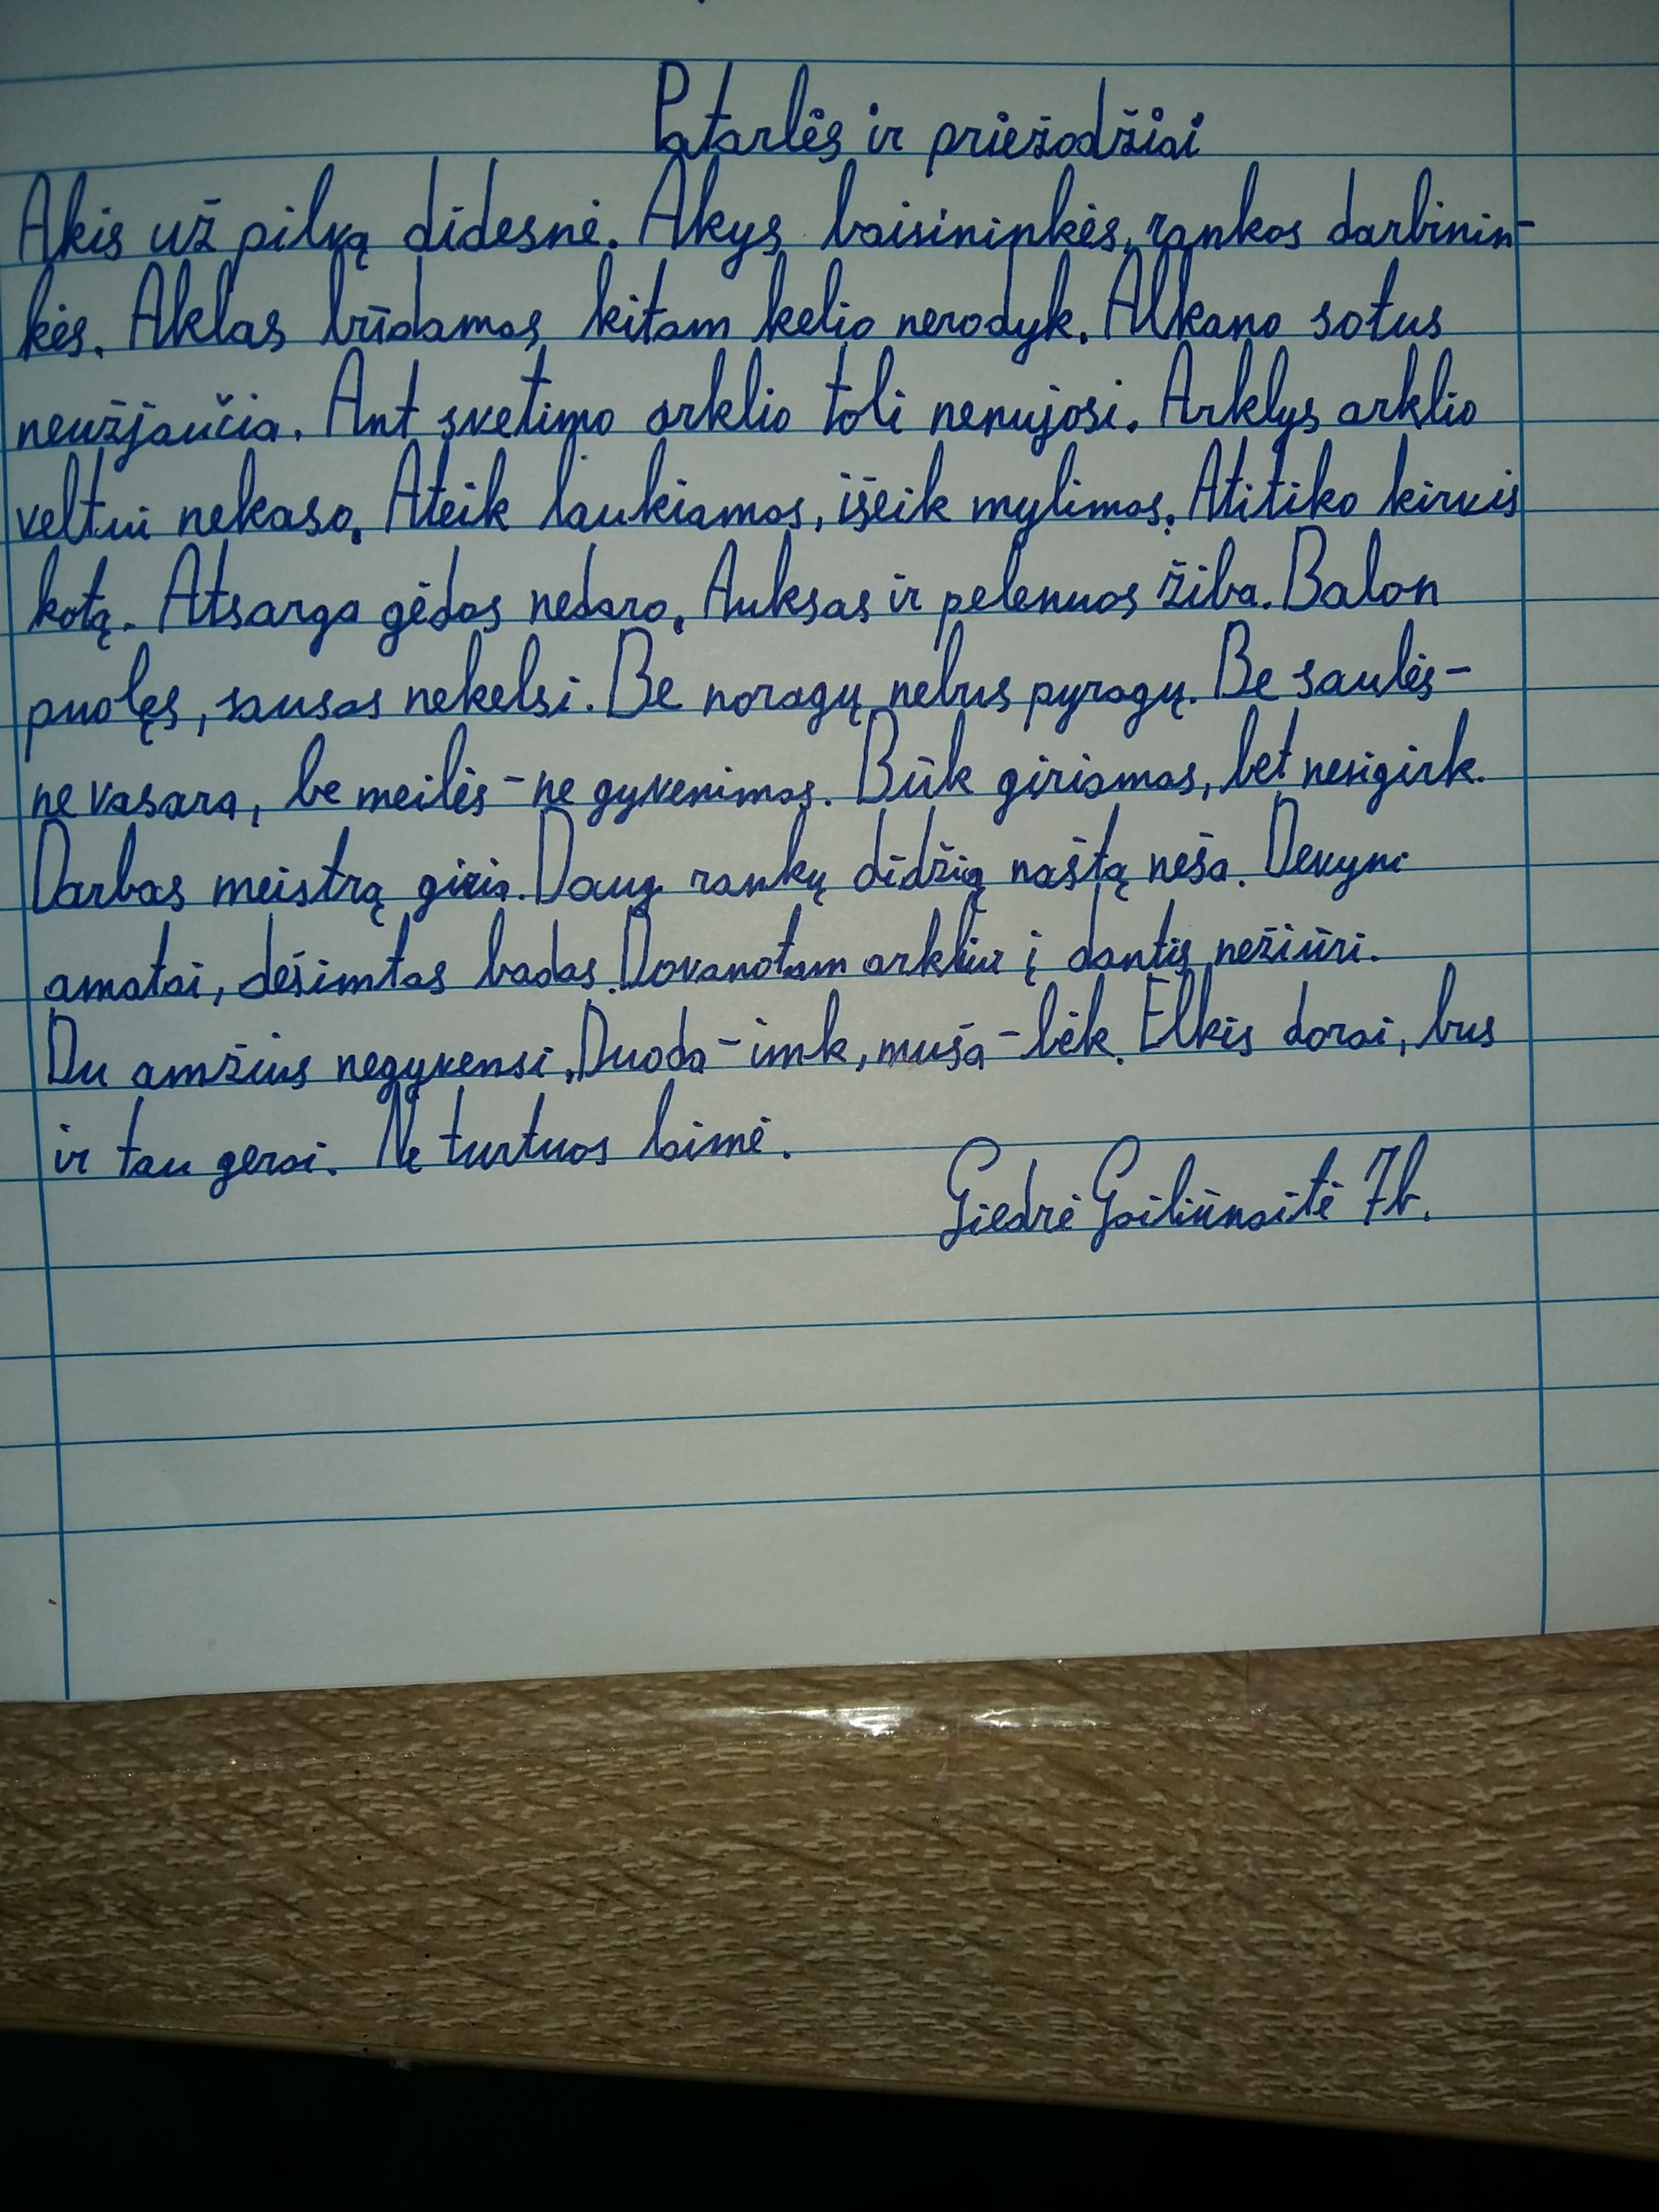 Patarlės ir priežodžiai
Akis už pilvą didesnė. Akys baisininkės, rankos darbinin-
kės. Aklas būdamas kitam kelio nerodyk. Alkano sotus
neužjaučia. Ant svetimo arklio toli nenujosi. Arklys arklio
veltui nekaso. Ateik laukiamas, išeik mylimas. Atitiko kirvis
kotą. Atsarga gėdos nedaro. Auksas ir pelenuos žiba. Balon
puolęs, sausas nekelsi. Be noragų nebus pyragų. Be saulės-
ne vasara, be meilės - ne gyvenimas. Būk giriamas, bet nesigirk.
Darbas meistrą giria. Daug rankų didžią naštą neša. Devyni
amatai, dešimtas badas. Dovanotam arkliui į dantis nežiūri.
Du amžius negyvensi. Duoda - imk, muša - bėk. Elkis dorai, bus
ir tau gerai. Ne turtuos laimė.
Giedrė Gailiūnaitė 7b.